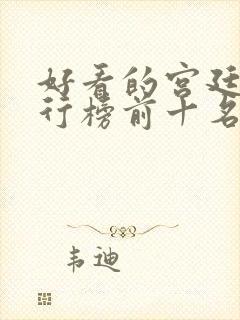 好看的宫廷
行榜前十名
韦迪